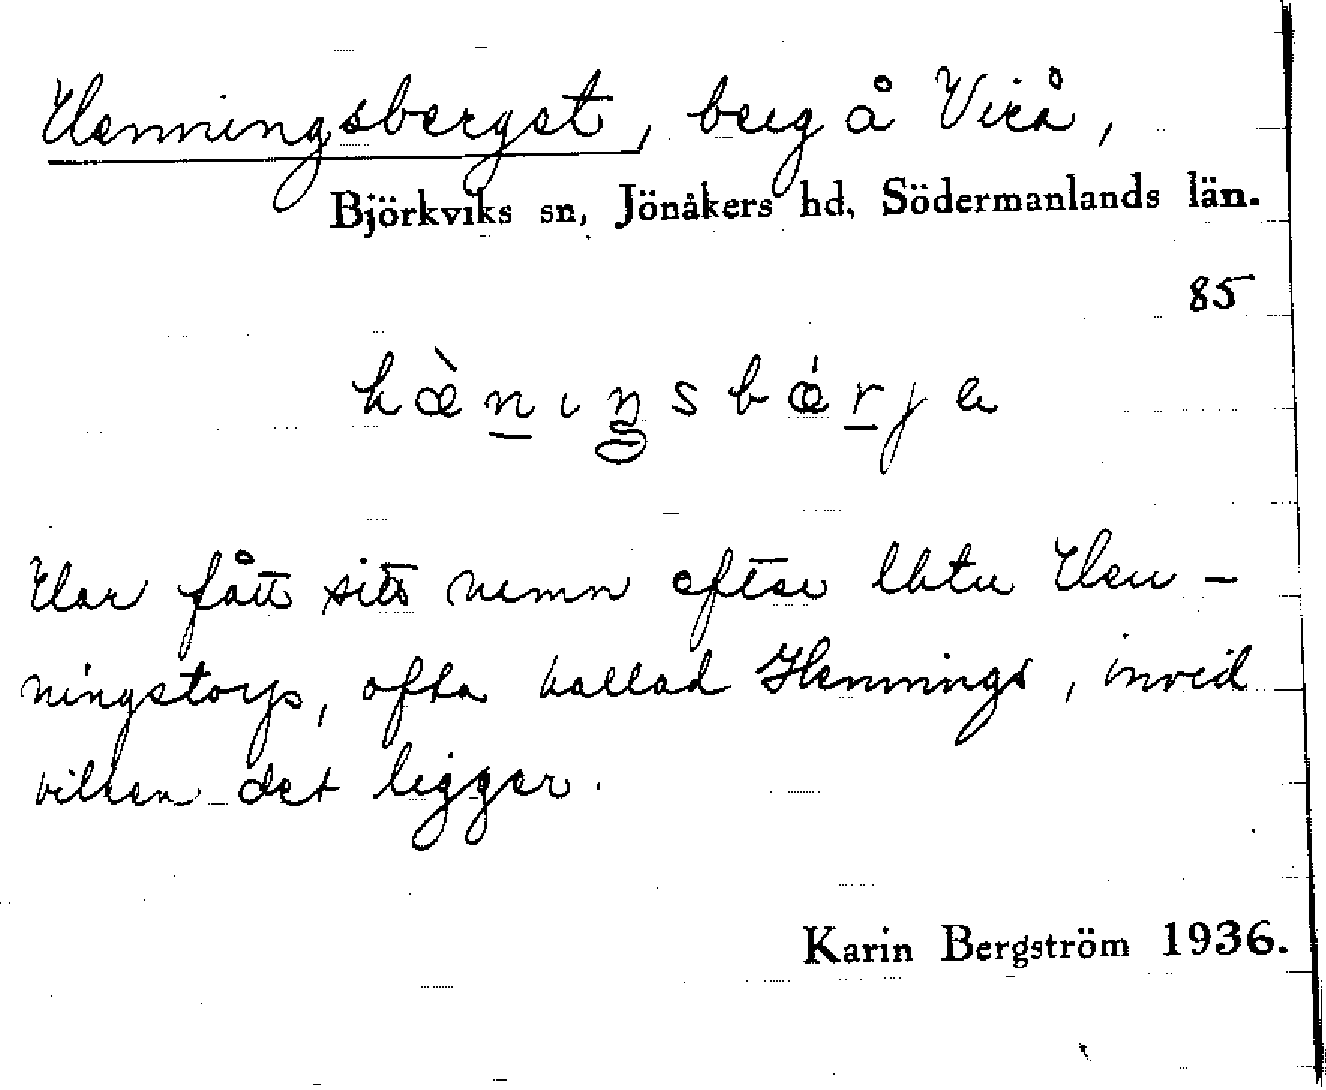 Henningsberget, berg å Virå,
Björkviks sn, Jönåkers hd, Södermanlands län.
85
hæ̀n̠ıŋsbǽr̠ja
Har fått sitt namn efter lht Hen-
ningstorp, ofta kallad Hennings, invid
vilken det ligger.
Karin Bergström 1936.